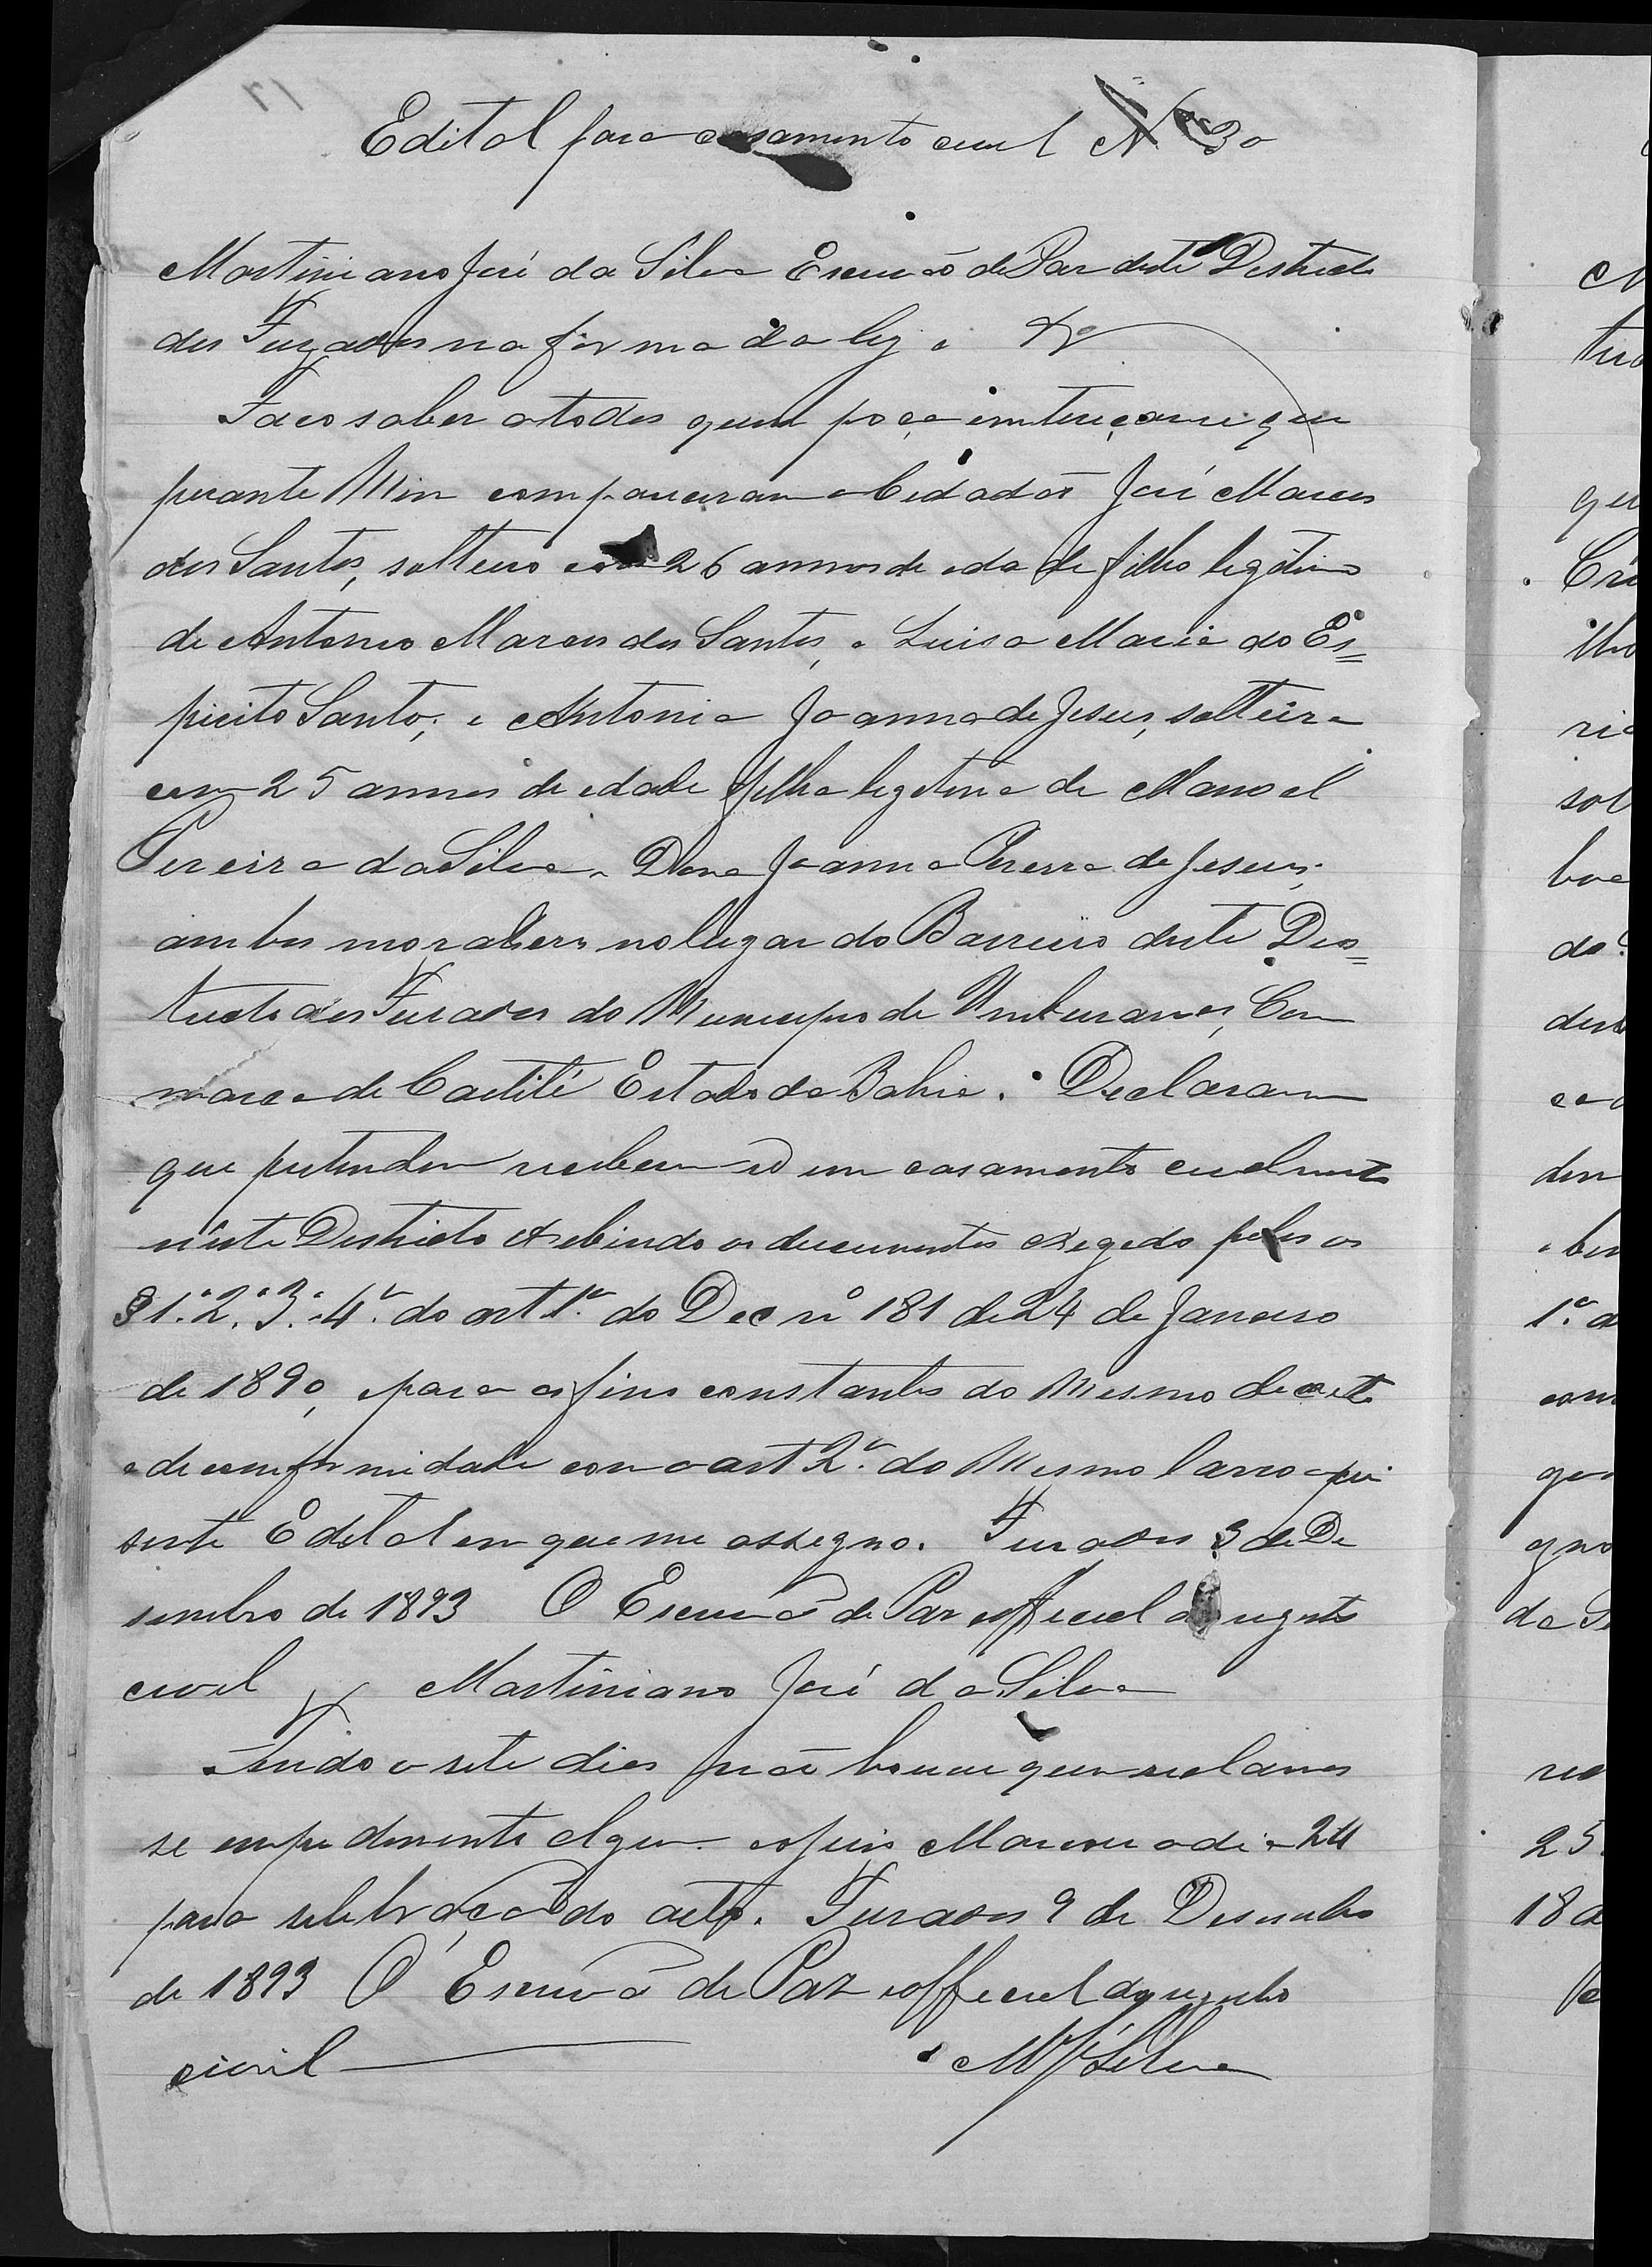 Edital para casamento civil Nº 30
Martiniano José da Silva Escrivão de Paz deste Districto
dos Furados na forma da ley &
Faco saber a todos quem poça intereçar que
perante Mim compareceram o Cidadão José Marcos
dos Santos, solteiro com 26 annos de edade filho legitimo
de Antonio Marcos dos Santos, e Luisa Maria do Es=
pirito Santo; e Antonia Joanna de Jesus, solteira
com 25 annos de edade filha legitima de Manoel
Pereira da Silva e Dona Joanna Pereira de Jesus;
ambos moradores no lugar do Barreiro deste Des=
tricto dos Furados do Municipio de Umburanas, Com
marca de Caetité Estado da Bahia. Declaram
que pretendem receberem se em casamento civelmente
neste Districto exebindo os documentos exegedo pelos os
§ 1º. 2º. 3º. 4º. do art 1º. do Dec nº 181 de 24 de Janeiro
de 1890, e para os fins constantes do Mesmo decreto
e de conformidade com o art 2º. do Mesmo lavro o pre
sente Edital em que me assegno. Furados 3 de De
sembro de 1893 O Escrivão de Paz e official do registo
civel Martiniano José da Silva
Findo o sete dias não houve quem reclamas
se empedimento algum e o juis Marcou o dia 24
para selebração do acto. Furados 9 de Desembro
de 1893 O Escrivão de Paz e official do registo
civil M J Silva